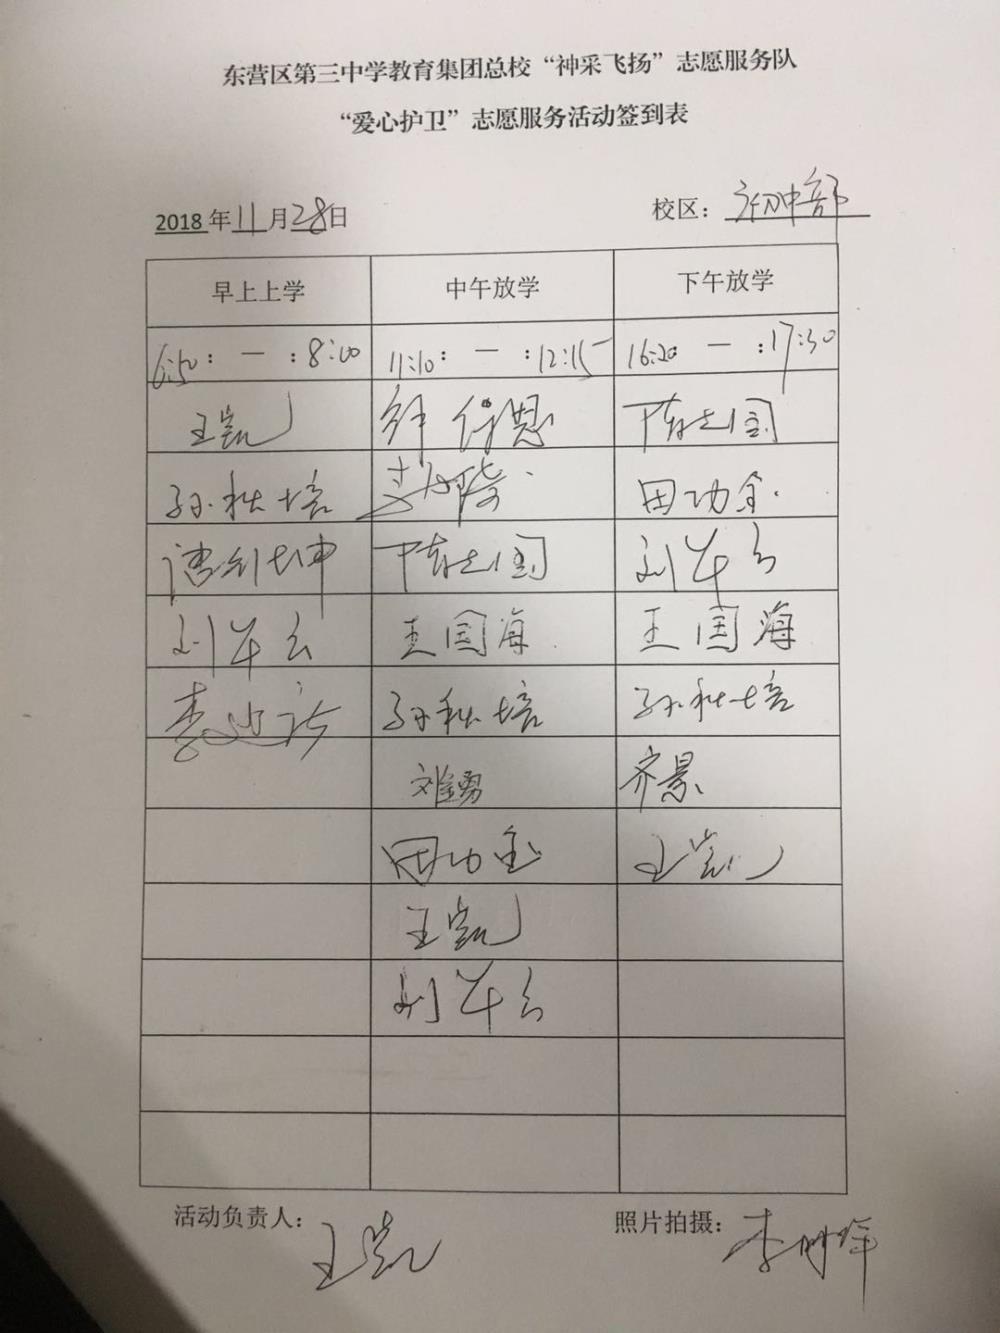 东营区第三中学教育集团总校“神采飞扬”志愿服务队
“爱心护卫”志愿服务活动签到表
2018年11月28日 校区：初中部
早上上学 中午放学 下午放学
6:50：—：8:00 11:10：—：12:15 16:20 —：17:30
王凯 陈志国
孙秋培 田功全
陈志国 刘军云
刘军云 王国海 王国海
孙秋培 孙秋培
刘金勇 齐景
田功全 王凯
王凯
刘军云
活动负责人：王凯 照片拍摄：李